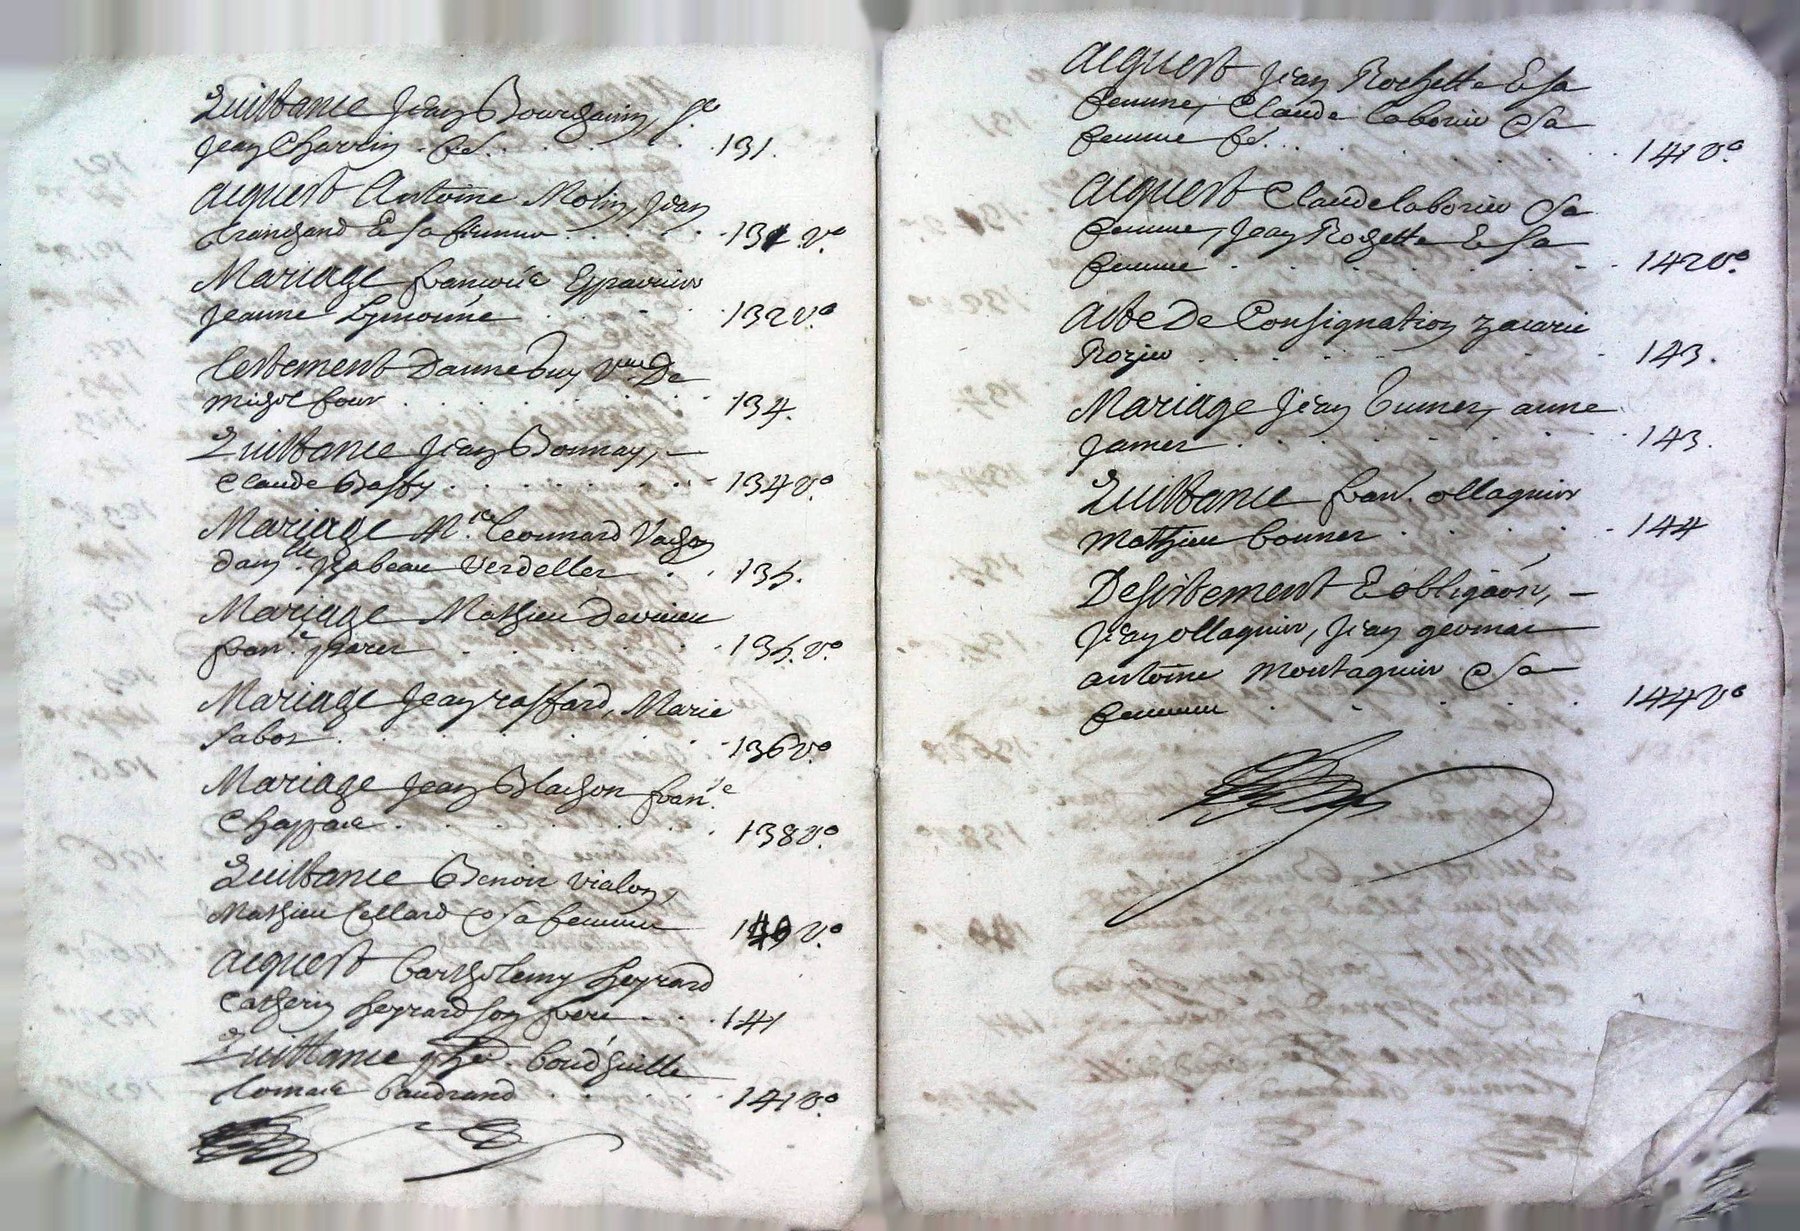 Quittance Jean Bourgain, Sr
Jean Charrin . fé. 131.
Acquest Antoine Morin, Jean
& sa femme 131 v°.
Mariage francois
Jeanne 132 v°
testement Danne vve De
michel four 134.
Quittance Jean Bonnay, —
Claude Baffy 134 v°.
Mariage Mre. leonnard Vachon
damlle. Izabeau Verdellet 135.
Mariage Mathieu
fran.e 135. v°.
Mariage Jean raffard, Marie
sabot 136 v°.
Mariage Jean Blachon fran.e
Chappare 138 v°.
Quittance Benoit vialon,
Mathieu Cellard & sa femme 140 v°.
Acquest barthelemy heyrard
Catherin heyrard son frere 141
Quittance
baudrand 141 v°.
Acquest Jean Rochette & sa
femme, Claude laborier & sa
femme fé. 141 v°.
Acquest Claude laborier & sa
femme, Jean Rochette & sa
femme 142 v°.
Acte De Consignation zacarie
Rozier 143.
Mariage Jean anne
Jamet 143.
Quittance fran. ollagnier
Mathieu bonnet 144
Desistement & obligaon, —
Jean ollagnier, Jean
antoine montagnier & sa
femme 144 v°